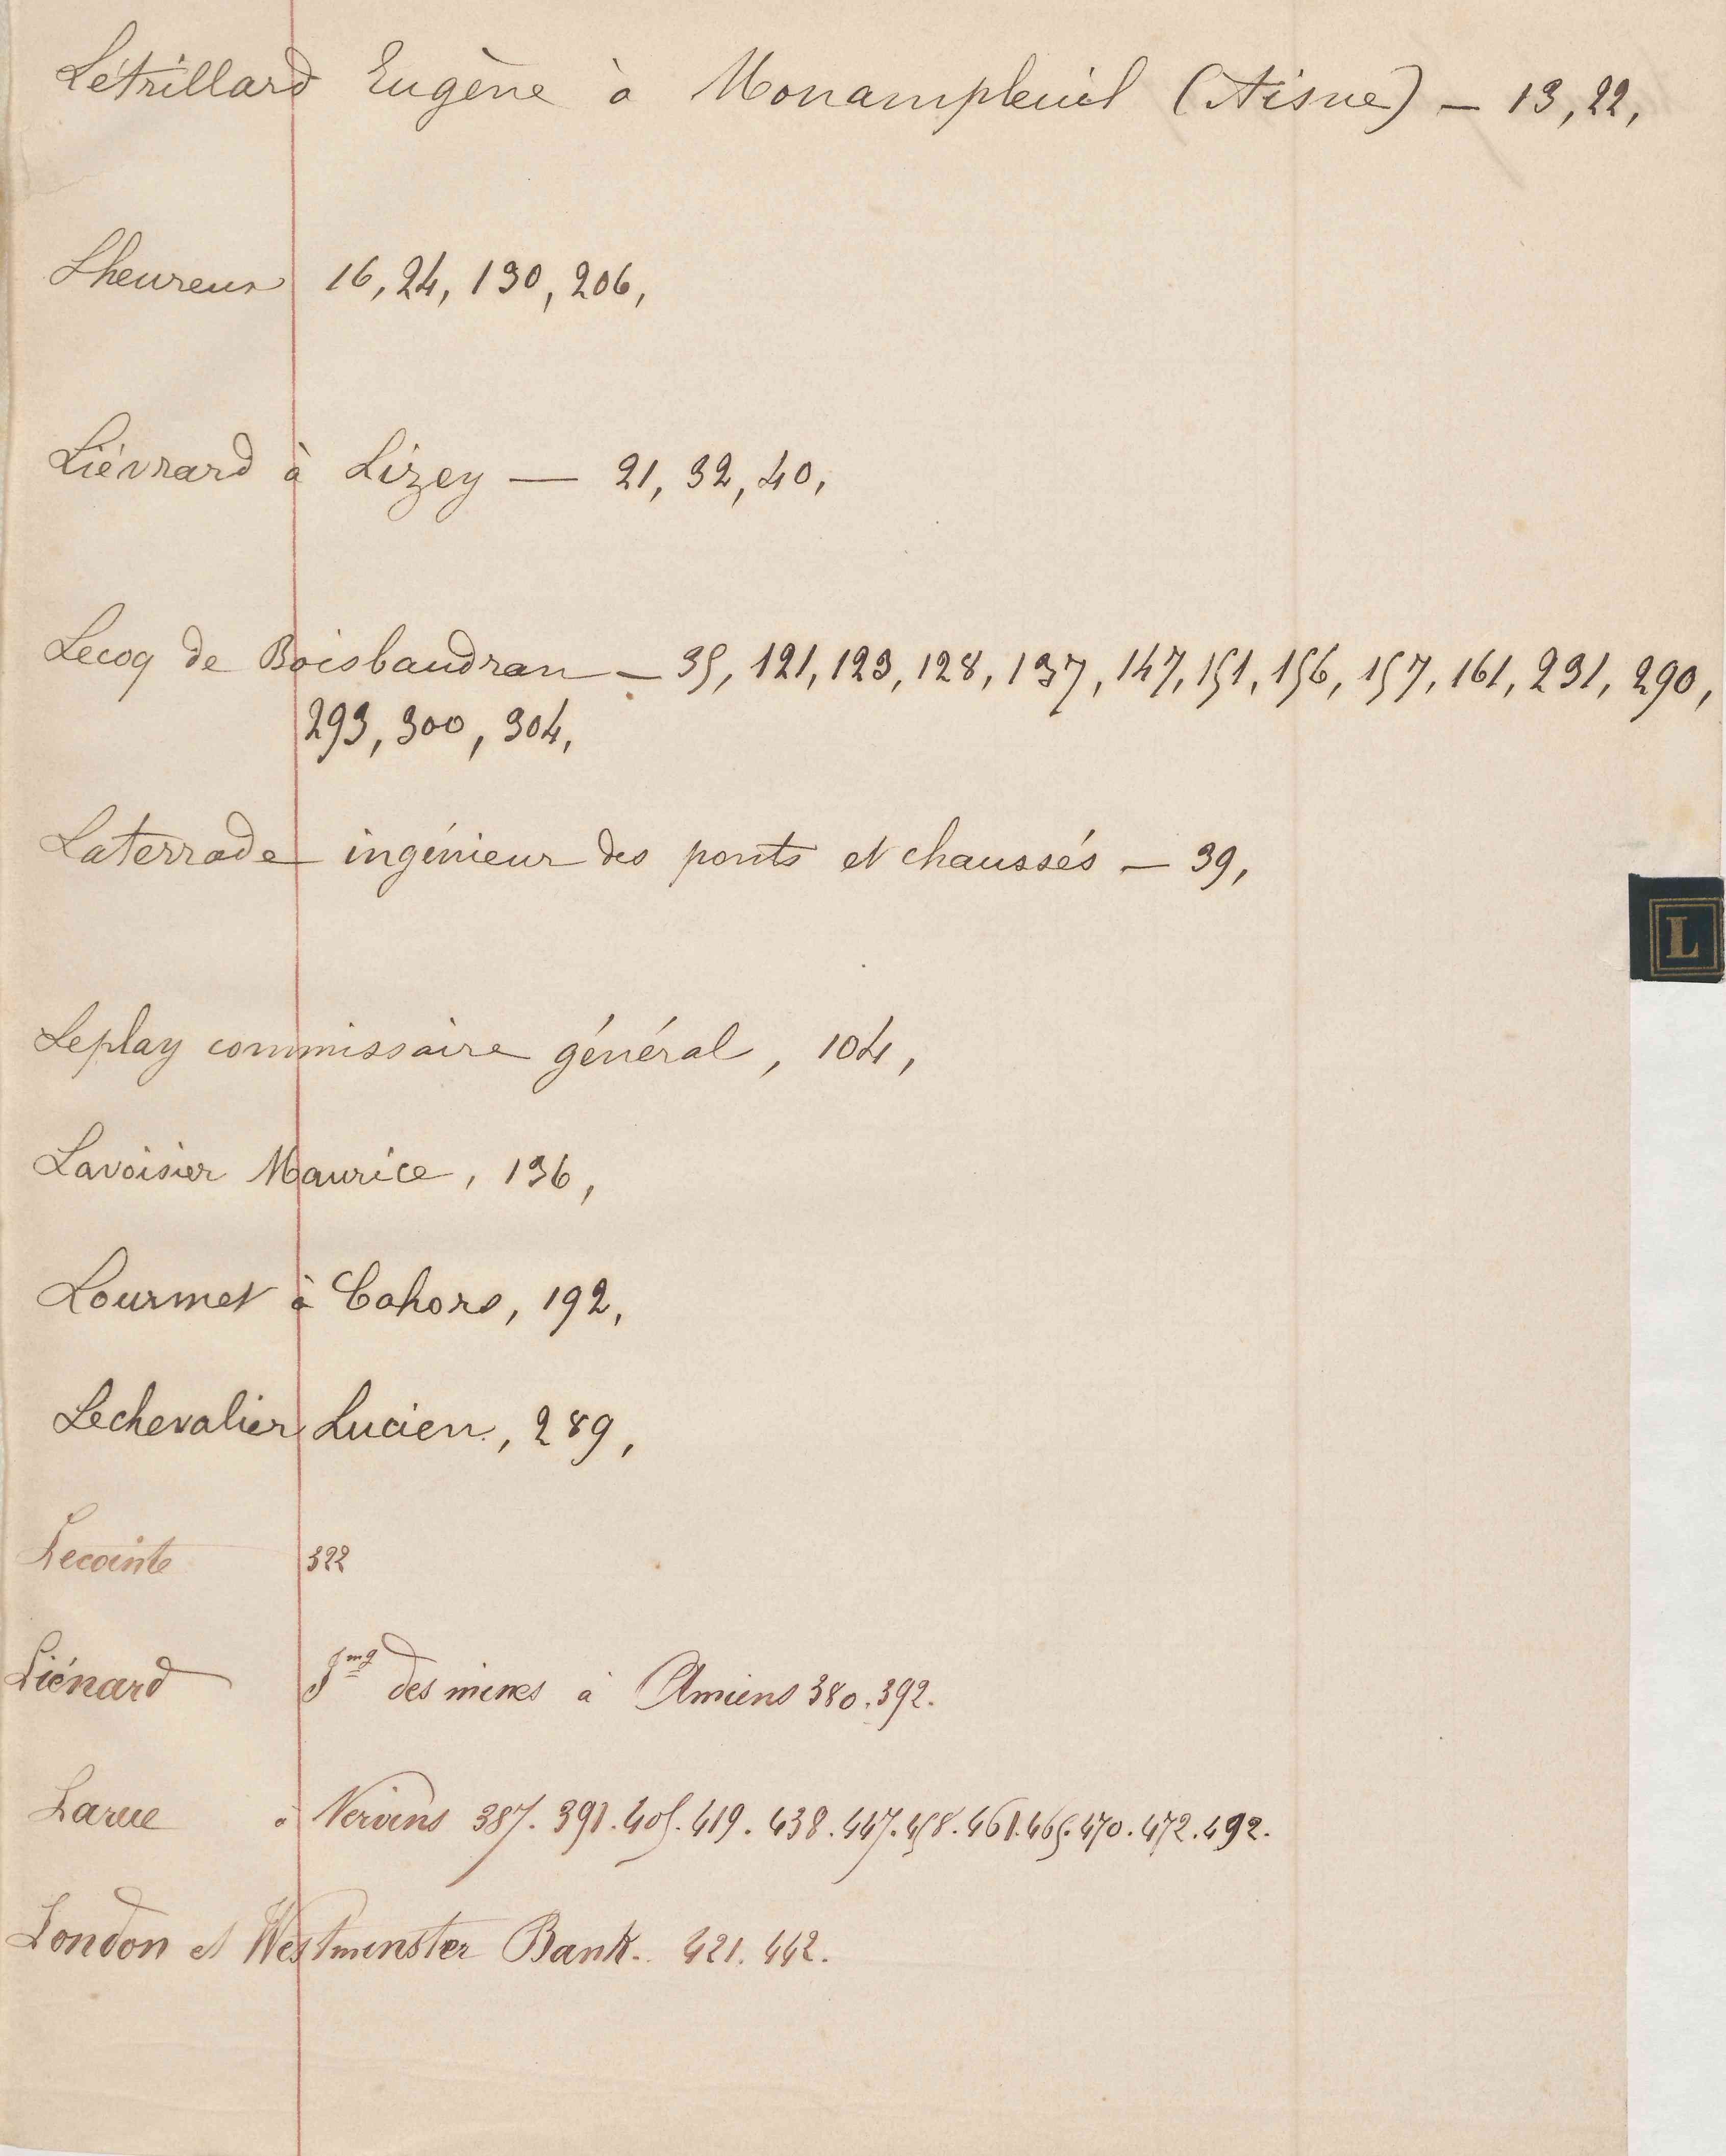 Létrillard Eugène à Monampleuil (Aisne) — 13, 22,
Lheureux 16, 24, 130, 206,
Liévrard à Lizey — 21, 32, 40,
Lecoq de Boisbaudran — 35, 121, 123, 128, 137, 147, 151, 156, 157, 161, 231, 290,
293, 300, 304,
Laterrade ingénieur des ponts et chaussés — 39,
L
Leplay commissaire général, 104,
Lavoisier Maurice, 136,
Lourmet à Cahors, 192,
Lechevalier Lucien, 289,
Lecointe 322
Liénard Ing des mines à Amiens 380. 392.
Larue à Vervins 387. 391. 405. 419. 438. 447. 458. 461. 465. 470. 472. 492.
London et Westminster Bank. 421. 442.